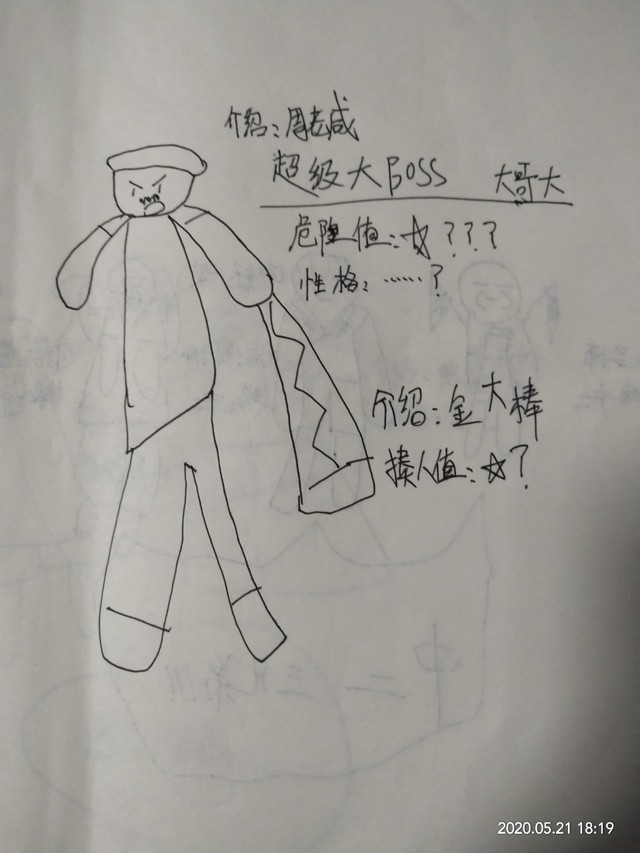 介绍：周老咸
超级大BOSS 大哥大
危险值：☆？？？
性格：……？
介绍：金大棒
揍人值：☆？
中二三兄弟!!!
2020.05.21 18:19